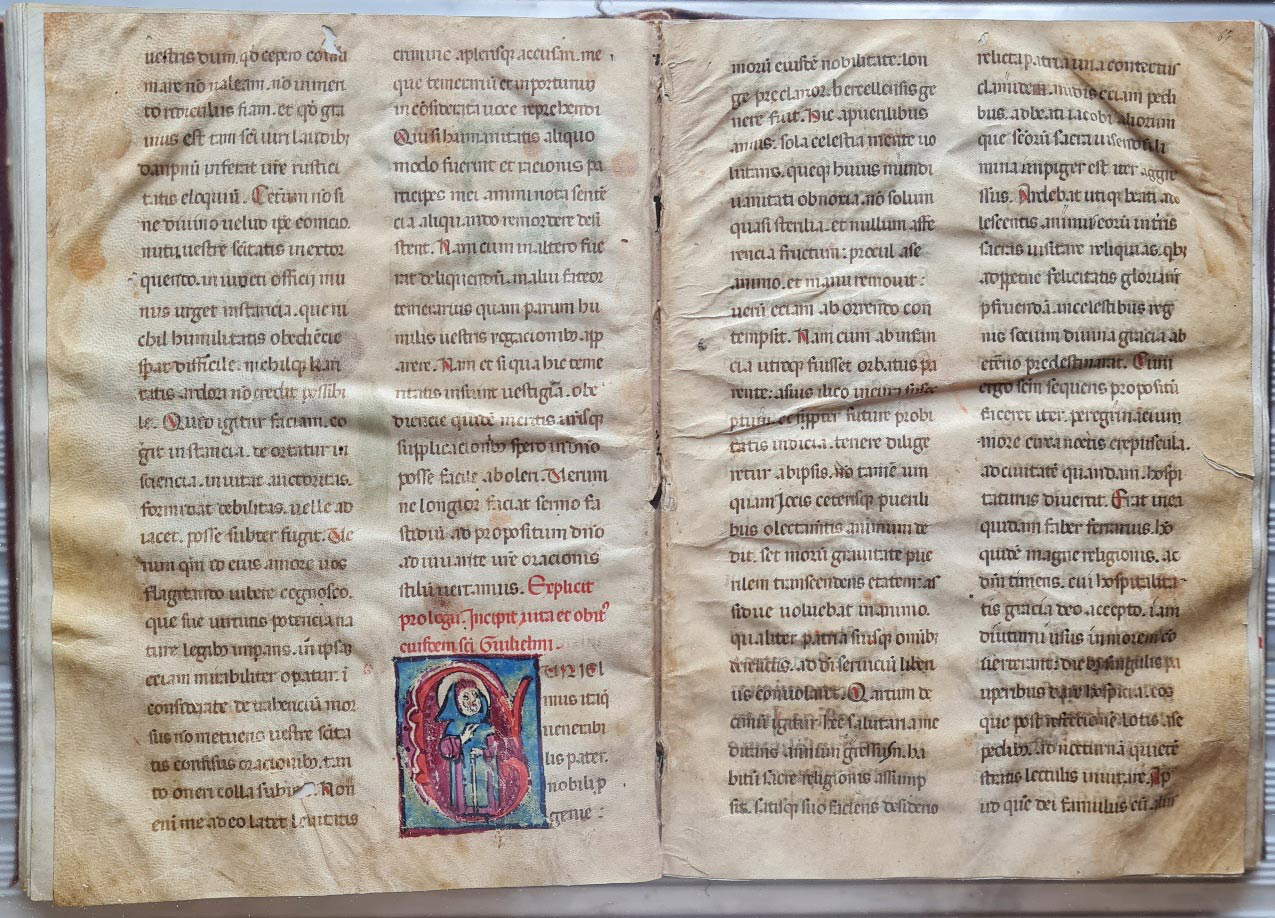 uestris dum. qď cepero cōsū
mare nō ualeam. nō inmeri
to ridiculus fiam. et qď gra
uius est tam sc̄i uiri laudibꝫ
dampnū inferat ur̄e rustici
tatis eloquiū. Ceterum nō si
ne diuino uelud ip̄e conicio.
nutu uestre sc̄itatis in extor
quendo. in iuncti officii mu
nus urget instancia. que ni
chil humilitatis obediēcie
sp̄at difficile. nichilqꝫ kari
tatis ardori nō credit possibi
le. Quid igitur faciam. co
git instancia. de ortatur in
sciencia. inuitat auctoritas.
formidat debilitas. uelle ad
iacet. posse subter fugit. Ue
rum qm̄ do eius amore uos
flagitando uibere cognosco.
que sue uirtutis potencia na
ture legibꝫ inpans. in ipsaꝫ
eciam mirabiliter opatur. i
considerate de trabenciū mor
sus nō metuens uestre sc̄ita
tis confisus oracionibꝫ. tan
to oneri colla subiciam. Non
eni me adeo latet leuitatis
crimine aplerisqꝫ accusari. me
que temerariū et inportunū
in cōsiderata uoce reprehendi
Qui si humanitatis aliquo
modo fuerint et racionis pa
rticipes mei animi nota sentē
cia aliquando remordere desi
stent. Nam cum in altero fue
rit deliquendū. malui fateor
temerarius quam parum hu
milis uestris rogacionibꝫ app
arere. Nam et si qua hic teme
ritatis insunt uestigia. obe
diencie quidē meritis urisqꝫ
supplicacionibꝫ spero in dn̄o
posse facile aboleri. Uerum
ne longior faciat sermo fa
stidiū ad propositum dn̄o
ad iuuante ur̄e oracionis
stilū uertamus. Explicit
prologꝰ. Incipit uita et obitꝰ
eiusdem sc̄i Guilielmi.
GUILIEL
mus itaqꝫ
uenerabi
lis pater.
nobili p
genie :
67
morū eiusdē nobilitate. lon
ge preclarior. hercellensis ge
nere fuit. Hic apuerilibus
annis : sola celestia mente uo
lutans. queqꝫ huius mundi
uanitati obnoxia. nō solum
quasi sterilia. et nullum affe
rencia fructum : procul a se
animo. et manu remouit :
uerū eciam ab orrendo con
tempsit. Nam cum ab infan
cia utroqꝫ fuisset orbatus pa
rente : a suis ilico incuri susce
ptus. et supper future probi
tatis indicia. tenere dilige
retur ab ipsis. nō tamē um
quam iocis ceterisqꝫ puerili
bus olectamētis animum de
dit. set morū grauitate pue
rilem transcendens etatem : as
sidue uoluebat in animo.
qualiter patria suisqꝫ omibꝫ
derelictis. ad di seruiciū liben
ius conuolaret. Quartum de
cimū igitur hec salutaria me
ditans annum gressusꝫ. ha
bitū sacre religionis assump
sit. satisqꝫ suo faciens desiderio
relicta patria una contectus
clamide. nudis eciam pedi
bus. ad beati iacobi aliorum
que sc̄orū sacra uisenda li
mina inpiger est iter aggre
ssus. Ardebat utiqꝫ beati ado
lescentis animus eorū in tris
sacras uisitare reliquias. qbꝫ
ad pꝑetue felicitatis gloriam
pfruendā. in celestibus reg
nis socium diuina gracia ab
eterno predestinarat. Cum
ergo sc̄m sequens propositū
faceret iter. peregrinacium
more circa noctis crepuscula.
ad ciuitatē quandam. hospi
taturus diuertit. Erat in ea
quidam faber ferrarius. hō
quidē magne religionis. ac
dm̄ timens. cui hospitalita
tis gracia deo accepto. iam
diuturni usus in morem do
uerterant : diebꝫ singulis pa
uperibus dare hospicia. eos
que post refectionē lotis a se
pedibꝫ. ad nocturnā quietē
stratis lectulis inuitare. Ap
ud que dei famulus cū. ali